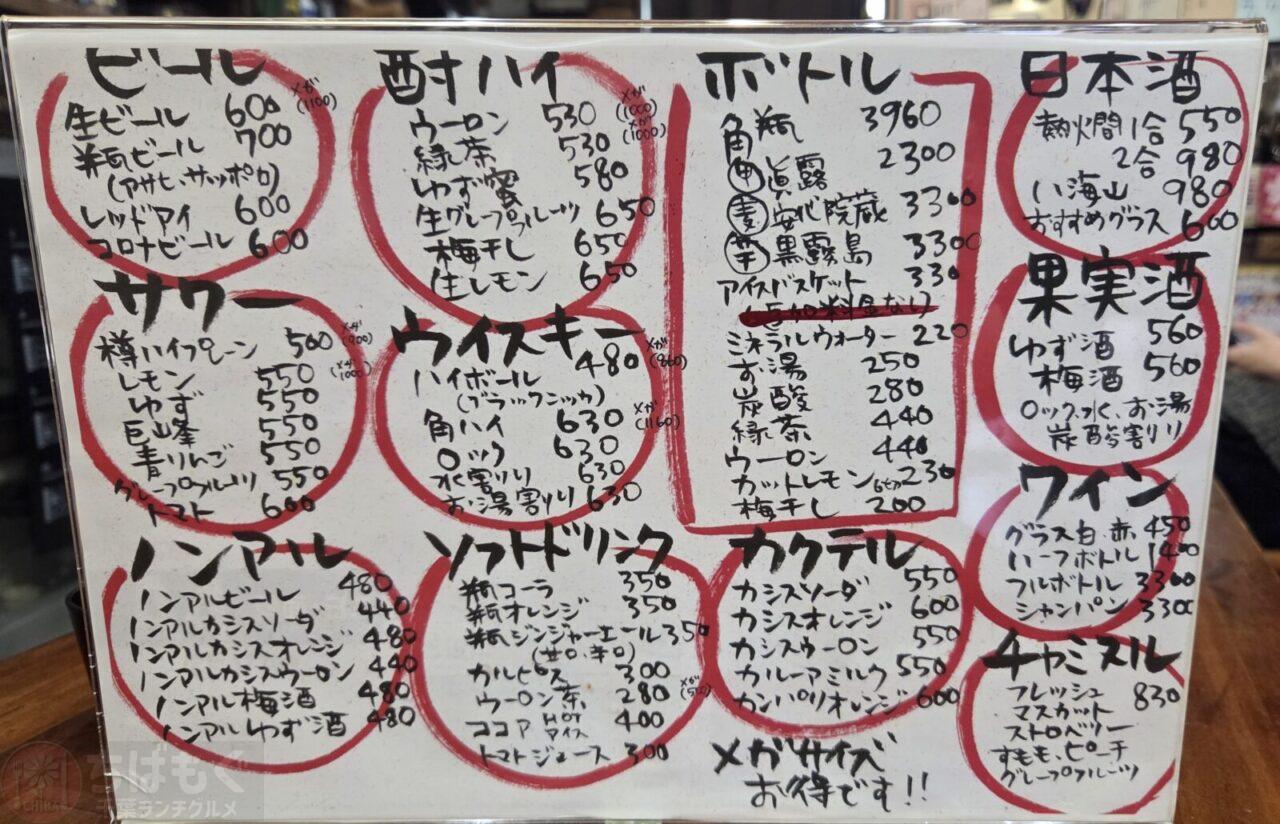 ビール
生ビール 600 メガ(1100)
瓶ビール 700
(アサヒ、サッポロ)
レッドアイ 600
コロナビール 600
サワー
樽ハイプレーン 500 メガ(900)
レモン 550 メガ(1000)
ゆず 550
巨峰 550
青りんご 550
グレープフルーツ 550
トマト 600
ノンアル
ノンアルビール 480
ノンアルカシスソーダ 440
ノンアルカシスオレンジ 480
ノンアルカシスウーロン 440
ノンアル梅酒 480
ノンアルゆず酒 480
酎ハイ
ウーロン 530 メガ(1000)
緑茶 530 メガ(1000)
ゆず蜜 580
生グレープフルーツ 650
梅干し 650
生レモン 650
ウイスキー
ハイボール 480 メガ(860)
(ブラックニッカ)
角ハイ 630 メガ(1160)
ロック 630
水割り 630
お湯割り 630
ソフトドリンク
瓶コーラ 350
瓶オレンジ 350
瓶ジンジャーエール 350
(甘口、辛口)
カルピス 300
ウーロン茶 280 メガ
ココア HOT アイス 400
トマトジュース 300
ボトル
角瓶 3960
甲 眞露 2300
麦 安心院蔵 3300
芋 黒霧島 3300
アイスバスケット 330
ミネラルウォーター 220
お湯 250
炭酸 280
緑茶 440
ウーロン 440
カットレモン 230
梅干し 200
カクテル
カシスソーダ 550
カシスオレンジ 600
カシスウーロン 550
カルーアミルク 550
カンパリオレンジ 600
メガサイズ
お得です!!
日本酒
熱燗 1合 550
2合 980
八海山 980
おすすめグラス 600
果実酒
ゆず酒 560
梅酒 560
ロック、水、お湯
炭酸割り
ワイン
グラス白、赤 450
ハーフボトル 1400
フルボトル 3300
シャンパン 3300
チャミスル
フレッシュ 830
マスカット
ストロベリー
すもも、ピーチ
グレープフルーツ
ちばもぐ
CHIBA
千葉ランチグルメ